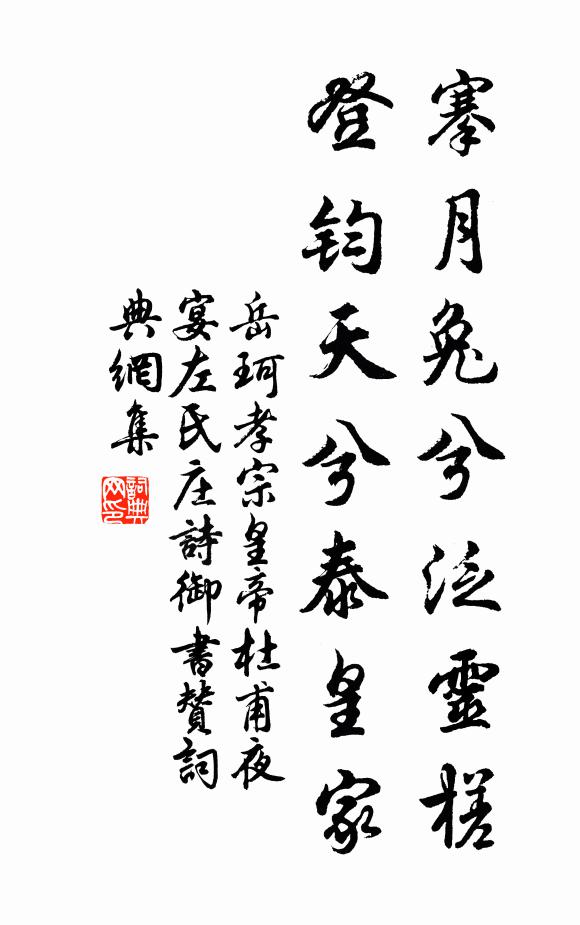 搴月兔兮泛靈槎
登鈞天兮泰皇家
岳珂孝宗皇帝杜甫夜
宴左氏庄詩御書贊詞
典網集
詞典
网印